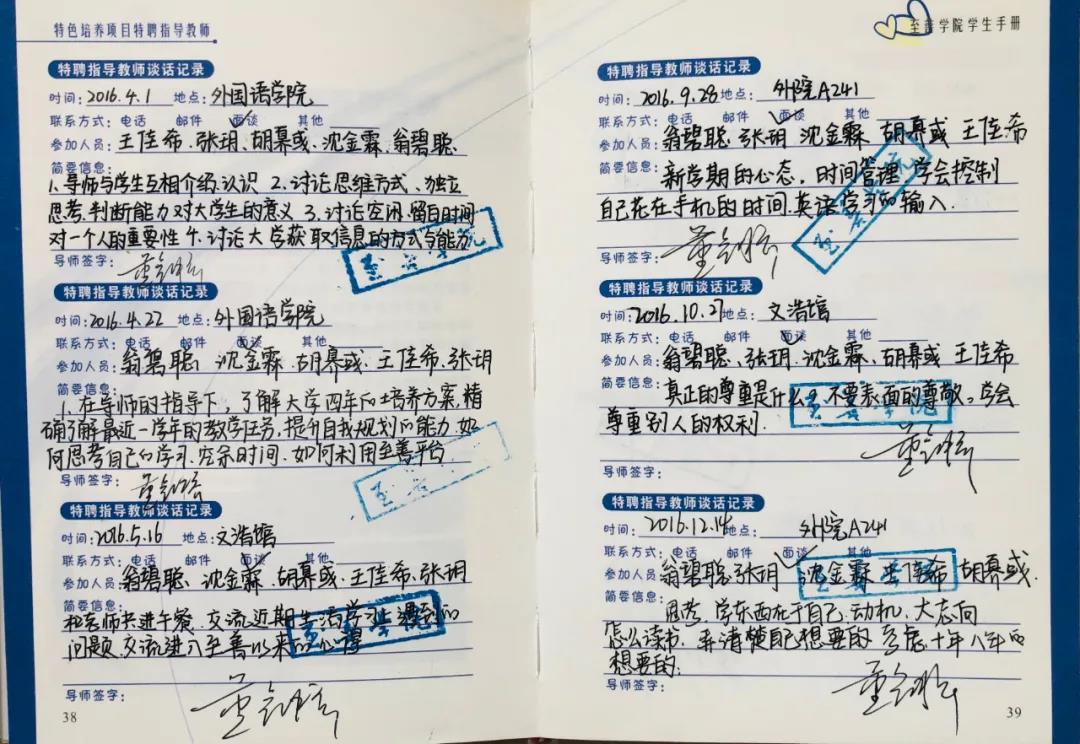 特色培养项目特聘指导教师
特聘指导教师谈话记录
时间：2016.4.1 地点：外国语学院
联系方式：电话 邮件 面谈 其他
参加人员：王佳希、张玥、胡幕彧、沈金霖、翁碧聪、
简要信息：
1.导师与学生互相介绍、认识 2.讨论思维方式、独立
思考、判断能力对大学生的意义 3.讨论空闲、留白时间
对一个人的重要性 4.讨论大学获取信息的方式与能力
导师签字：
特聘指导教师谈话记录
时间：2016.4.22 地点：外国语学院
联系方式：电话 邮件 面谈 其他
参加人员：翁碧聪、沈金霖、胡幕彧、王佳希、张玥
简要信息：
1.在导师的指导下，了解大学四年的培养方案，精
确了解最近一学年的教学任务，提升自我规划的能力，如
何思考自己的学习、空余时间，如何利用至善平台
导师签字：
特聘指导教师谈话记录
时间：2016.5.16 地点：文浩馆
联系方式：电话 邮件 面谈 其他
参加人员：翁碧聪、沈金霖、胡幕彧、王佳希、张玥
简要信息：
和老师共进午餐，交流近期生活学习上遇到的
问题，交流进入至善以来的心得
导师签字：
38
至善学院学生手册
特聘指导教师谈话记录
时间：2016.9.28 地点：外院A241
联系方式：电话 邮件 面谈 其他
参加人员：翁碧聪、张玥、沈金霖、胡幕彧 王佳希
简要信息：
新学期的心态，时间管理，学会控制
自己花在手机的时间，英语学习的输入.
导师签字：
特聘指导教师谈话记录
时间：2016.10.27 地点：文浩馆
联系方式：电话 邮件 面谈 其他
参加人员：翁碧聪、张玥、沈金霖、胡幕彧 王佳希
简要信息：
真正的尊重是什么？不要表面的尊敬。学会
尊重别人的权利.
特聘指导教师谈话记录
时间：2016.12.14 地点：外院A241
联系方式：电话 邮件 面谈 其他
参加人员：翁碧聪 张玥 沈金霖 王佳希 胡幕彧.
简要信息：
思考，学东西在于自己，动机，大志向
怎么读书，弄清楚自己想要的 考虑十年八年后
想要的.
导师签字：
39